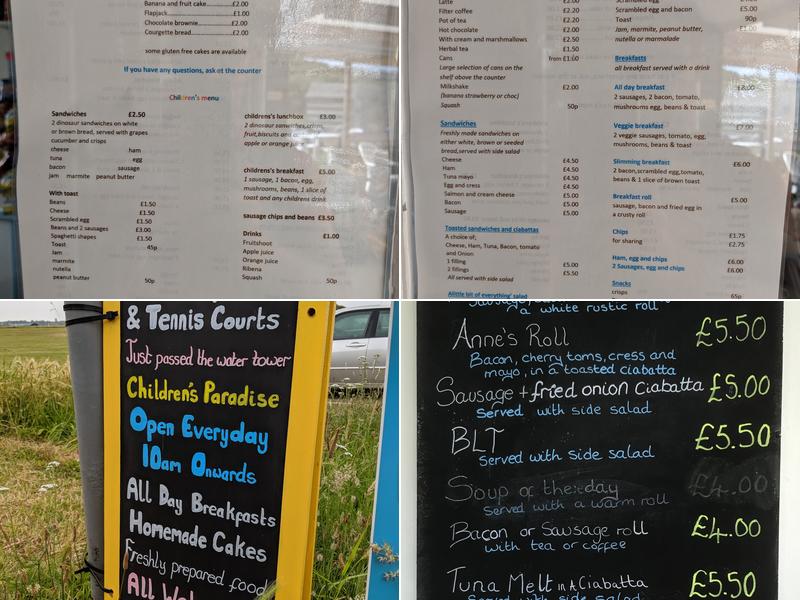 Banana and fruit cake..........£2.00
Flapjack..........£1.00
Chocolate brownie..........£2.00
Courgette bread..........£2.00
some gluten free cakes are available
If you have any questions, ask at the counter
Children's menu
Sandwiches £2.50
2 dinosaur sandwiches on white
or brown bread, served with grapes
cucumber and crisps
cheese ham
tuna egg
bacon sausage
jam marmite peanut butter
With toast
Beans £1.50
Cheese £1.50
Scrambled egg £1.50
Beans and 2 sausages £3.00
Spaghetti shapes £1.50
Toast 45p
Jam
marmite
nutella
peanut butter 50p
childrens's lunchbox £3.00
2 dinosaur sanwiches,crisps,
fruit,biscuits and a
apple or orange juice
childrens's breakfast £5.00
1 sausage, 1 bacon, egg,
mushrooms, beans, 1 slice of
toast and any childrens drink
sausage chips and beans £3.50
Drinks £1.00
Fruitshoot
Apple juice
Orange juice
Ribena
Squash 50p
Latte £2.00
Filter coffee £2.20
Pot of tea £2.20
Hot chocolate £2.00
With cream and marshmallows £2.50
Herbal tea £1.50
Cans from £1:00
Large selection of cans on the
shelf above the counter
Milkshake £2.00
(banana strawberry or choc)
Squash 50p
Sandwiches
Freshly made sandwiches on
either white, brown or seeded
bread,served with side salad
Cheese £4.50
Ham £4.50
Tuna mayo £4.50
Egg and cress £4.50
Salmon and cream cheese £5.00
Bacon £5.00
Sausage £5.00
Toasted sandwiches and ciabattas
A choice of;
Cheese, Ham, Tuna, Bacon, tomato
and Onion
1 filling £5.00
2 fillings £5.50
All served with side salad
Alittle bit of everything' salad
Scrambled egg
Scrambled egg and bacon £5.00
Toast 90p
Jam, marmite, peanut butter,
nutella or marmalade
Breakfasts
all breakfast served with a drink
All day breakfast £8.00
2 sausages, 2 bacon, tomato,
mushrooms egg, beans & toast
Veggie breakfast £7.00
2 veggie sausages, tomato, egg,
mushrooms, beans & toast
Slimming breakfast £6.00
2 bacon,scrambled egg,tomato,
beans & 1 slice of brown toast
Breakfast roll £5.00
sausage, bacon and fried egg in
a crusty roll
Chips £1.75
for sharing £2.75
Ham, egg and chips £6.00
2 Sausages, egg and chips £6.00
Snacks
crisps 65p
& Tennis Courts
Just passed the water tower
Children's Paradise
Open Everyday
10am Onwards
All Day Breakfasts
Homemade Cakes
Freshly prepared food
All
a white rustic roll
Anne's Roll £5.50
Bacon, cherry toms, cress and
mayo, in a toasted ciabatta
Sausage + fried onion Ciabatta £5.00
Served with side salad
BLT £5.50
Served with side salad
Soup of the day £4.00
Served with a warm roll
Bacon or Sausage roll £4.00
with tea or coffee
Tuna Melt in A Ciabatta £5.50
Served with side salad